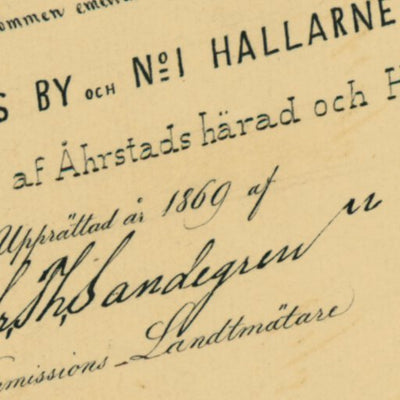 ommen
S BY OCH No 1 HALLARNE
af Åhrstads härad och H
Upprättad år 1869 af
Fr, Th, Sandegren
missions-Landtmätare